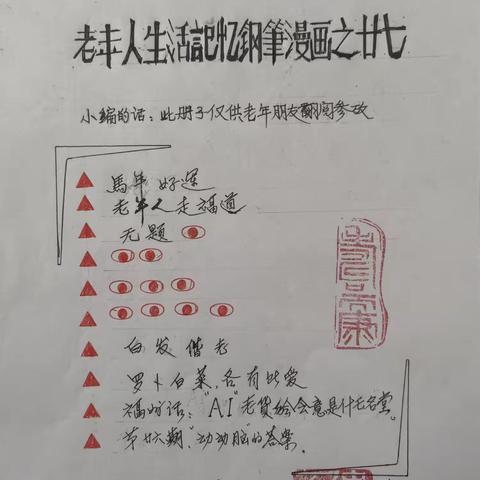 老年人生活記忆鋼筆漫画之廿七
小编的话：此册子仅供老年朋友翻阅参改
馬年好运
老年人走福道
无题
白发偕老
罗卜白菜，各有所爱
福的话："AI"老货给会意是什乇名堂。
节廿六期，"动动脑"的荅案。